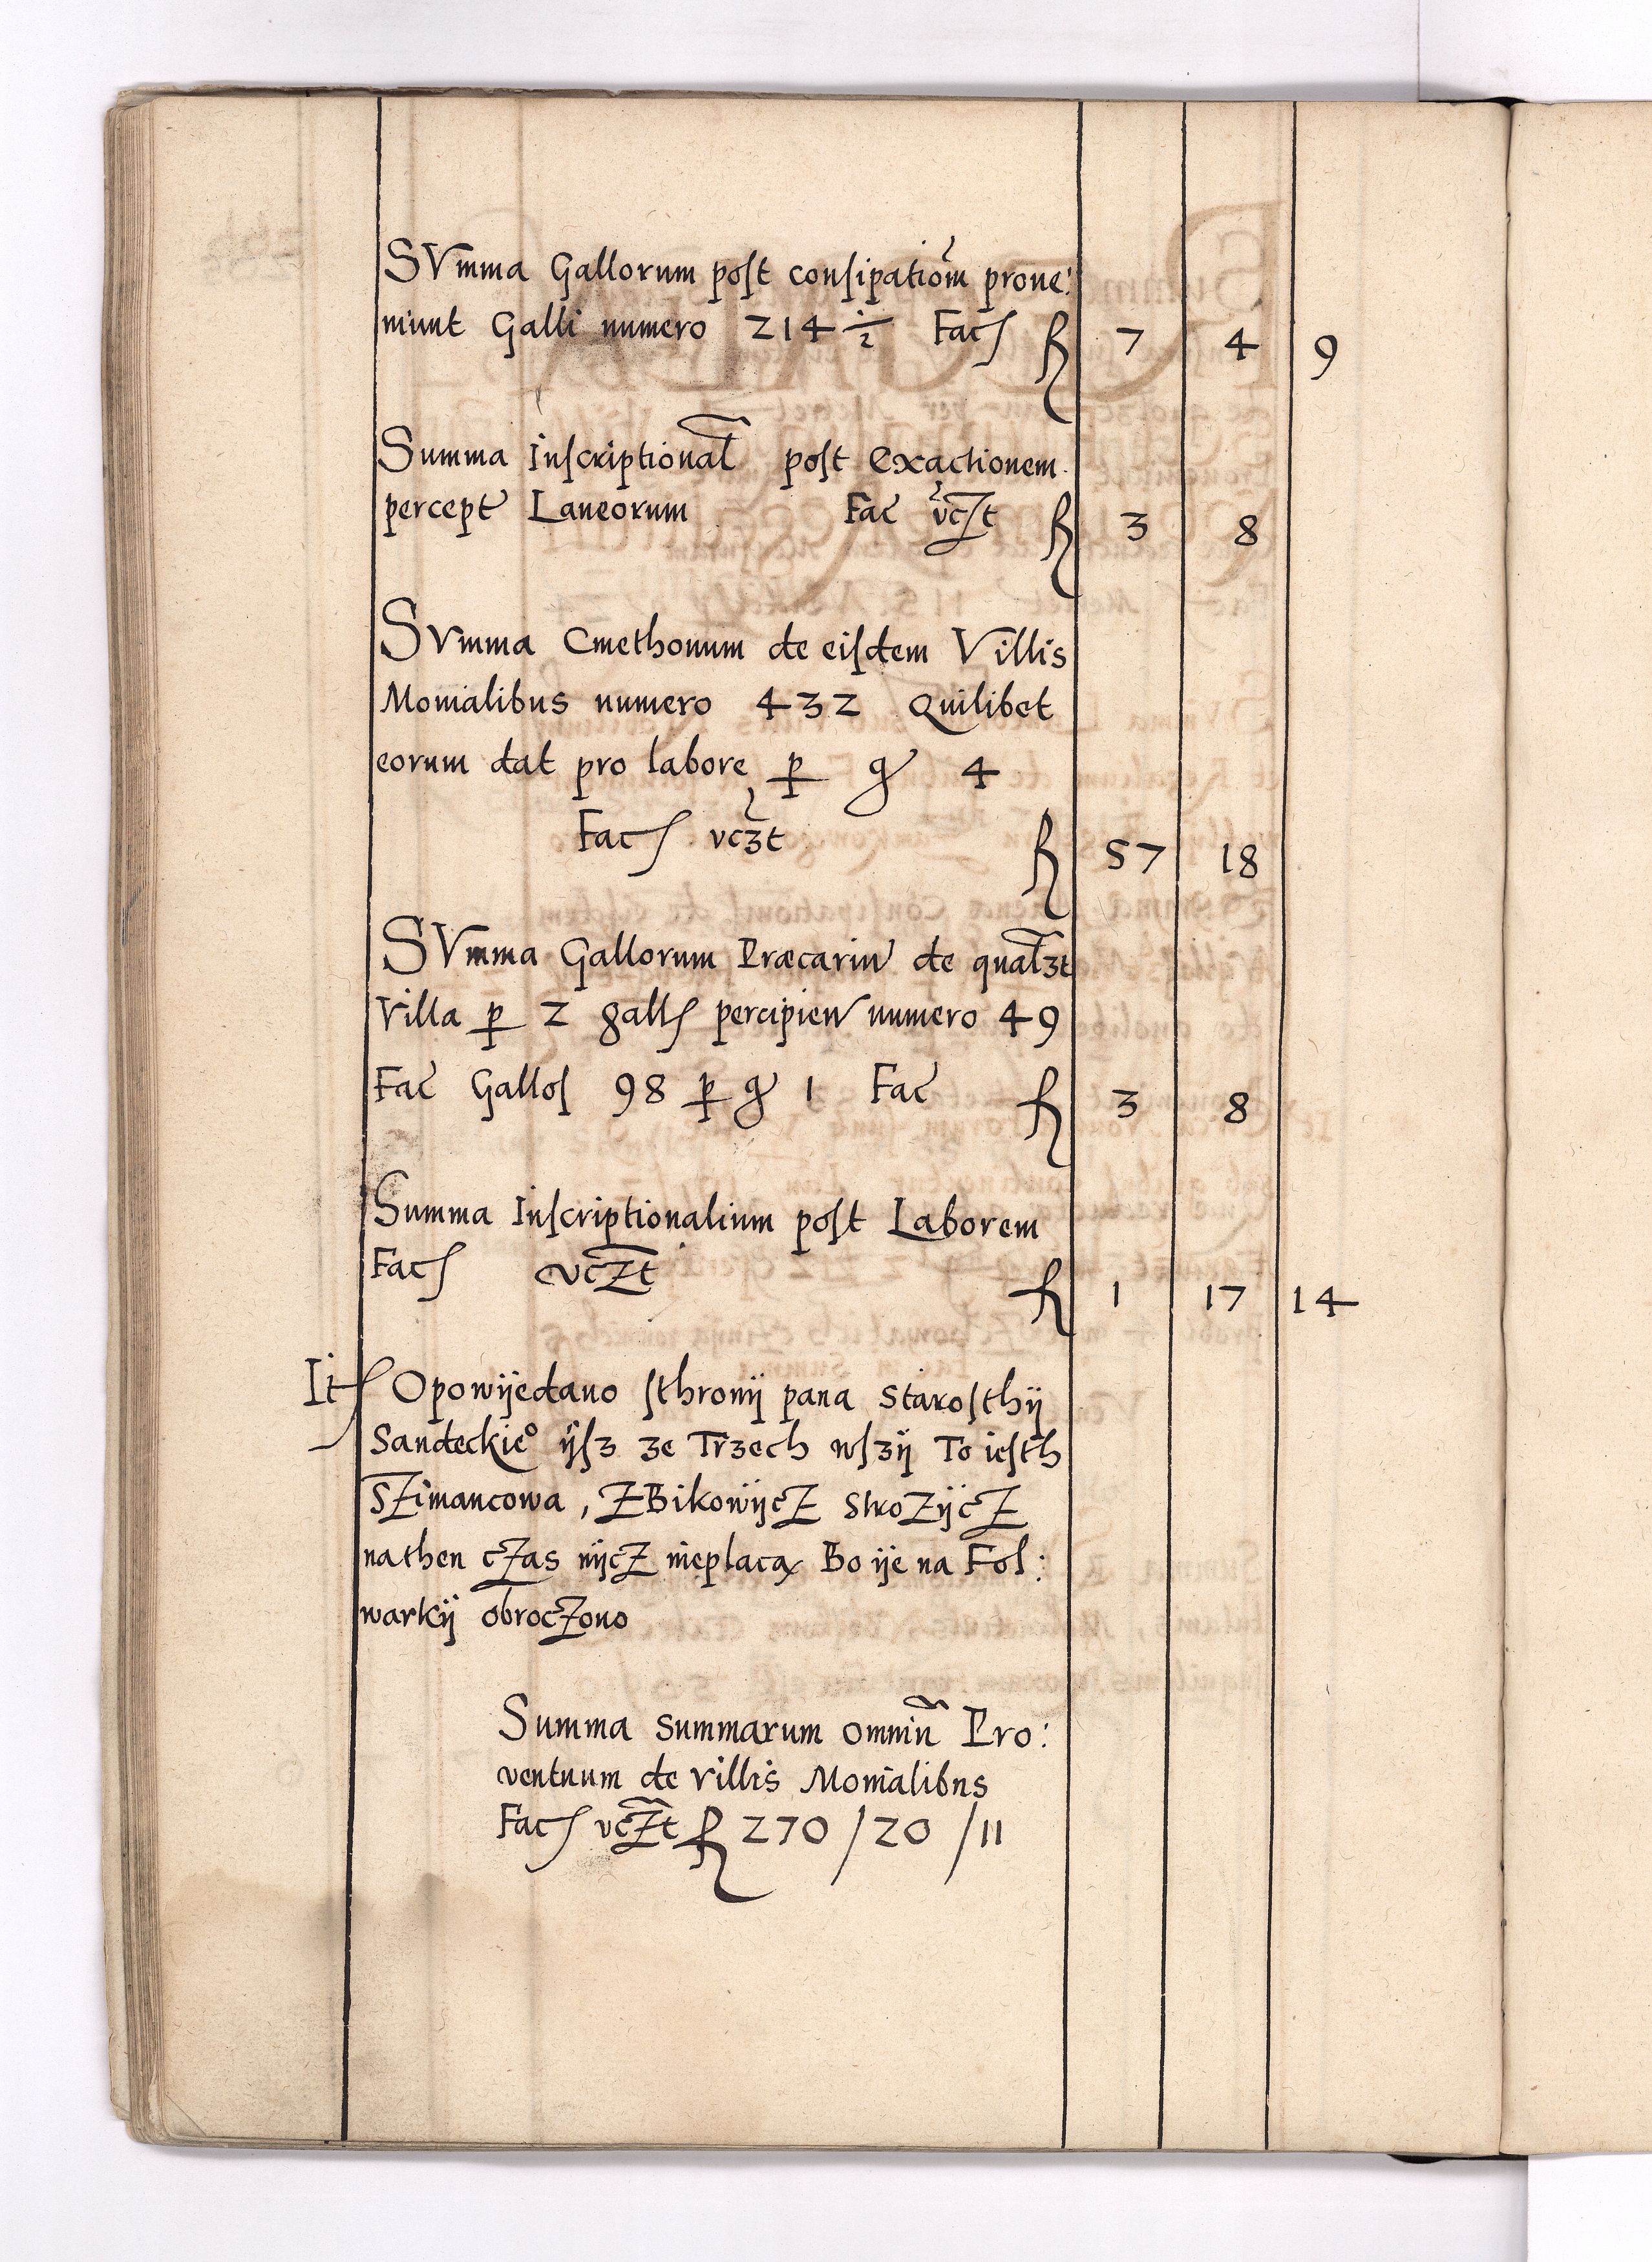 SVmma Gallorum poſt conſipatiom̄ proue:
niunt Galli numero 214 ½ Fac ꝭ R 7 4 9
Summa Inſcriptional̄ poſt Exactionem
percept Laneorum Fac vczt R 3 8
SVmma Cmethonum de eiſdem Villis
Monialibus numero 432 Quilibet
eorum dat pro labore ꝑ gr 4
Facꝭ vczt R 57 18
SVmma Gallorum Præcariu de qual̄ʒt
Villa ꝑ 2 gallꝭ percipien numero 49
Fac Galloſ 98 ꝑ gr 1 Fac R 3 8
Summa Inſcriptionalium poſt Laborem
Facꝭ vczt R 1 17 14
It Opowijedano ſthronij pana Staroſthij
Sandeckieº ijſʒ ʒe Trʒech wſʒij To ieſth
Szimancowa, ZBikowijcz Strozijcz
nathen czas nijcz nieplacą Bo ije na Fol:
warkij obroczono
Summa summarum omniū Pro:
ventuum de villis Monialibus
Facꝭ vczt R 270 / 20 / 11